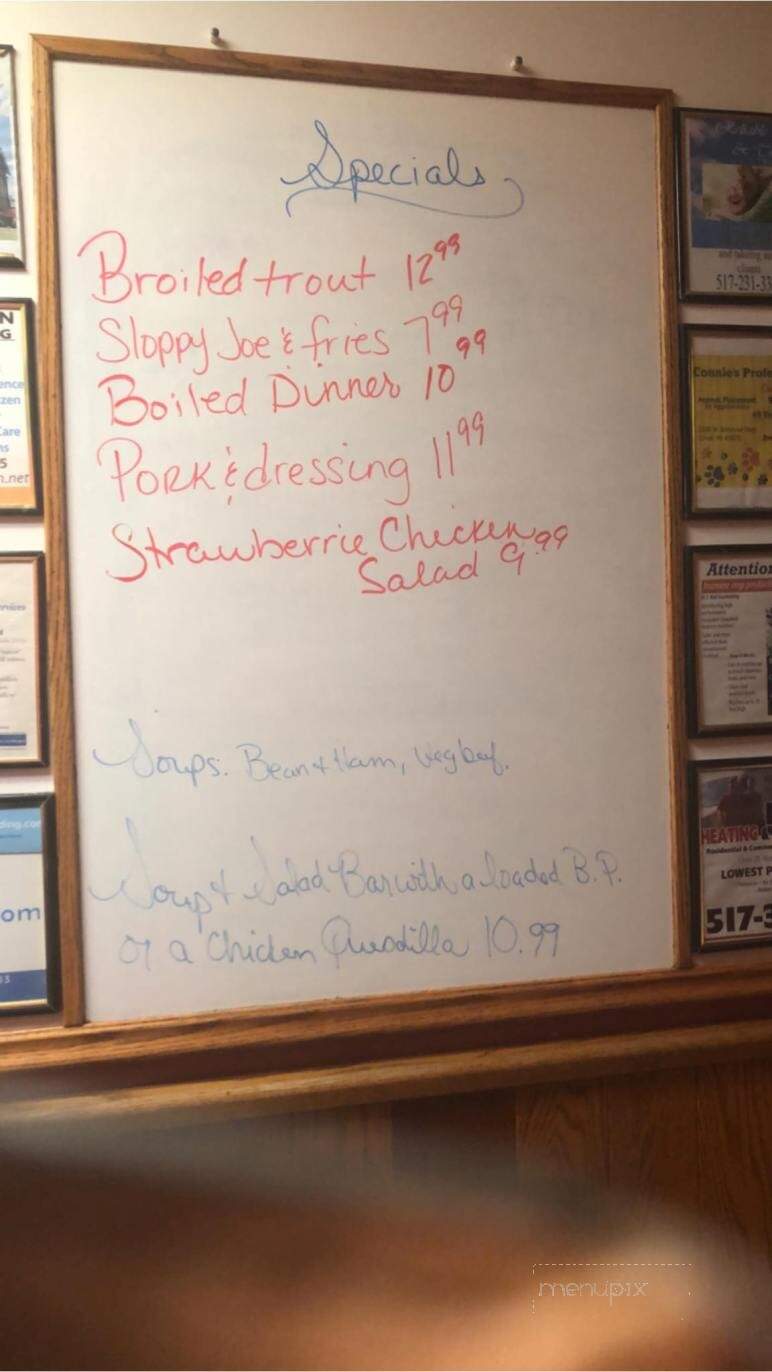 Specials
Broiled trout 12 99
Sloppy Joe & fries 7 99
Boiled Dinner 10 99
Pork & dressing 11 99
Strawberrie Chicken
Salad 9.99
Soups: Bean & Ham, Veg beef.
Soup & Salad Bar with a loaded B.P.
or a Chicken Quesdilla 10.99
N
G
ence
zen
Care
ns
5
n.net
ding.com
om
517-231-33
Connie's Profe
Attention
HEATING &
Residential & Comme
LOWEST P
517-3
menupix